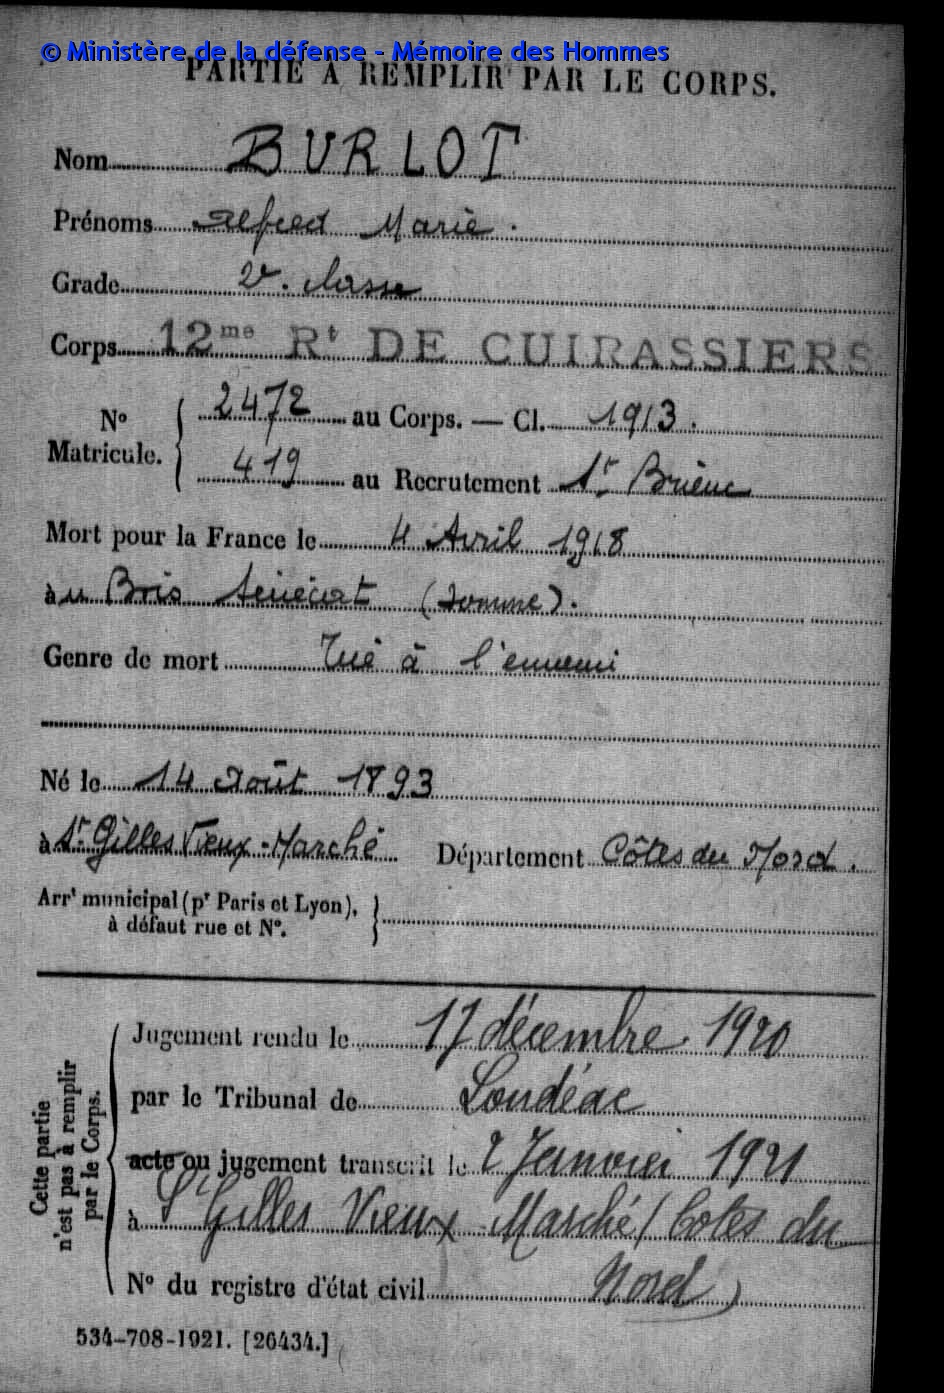 © Ministère de la défense - Mémoire des Hommes
PARTIE À REMPLIR PAR LE CORPS.
Nom BURLOT
Prénoms Alfred Marie.
Grade 2e. classe
Corps 12me Rt DE CUIRASSIERS
No Matricule. { 2472 au Corps. — Cl. 1913.
419 au Recrutement St Brieuc
Mort pour la France le 4 Avril 1918
àu Bois Sénécat (Somme).
Genre de mort Tué à l'ennemi
Né le 14 Août 1893
à St Gilles Vieux-Marché Département Côtes du Nord.
Arrt municipal (pr Paris et Lyon), }
à défaut rue et No.
Cette partie
n'est pas à remplir
par le Corps.
Jugement rendu le 17 décembre 1920
par le Tribunal de Loudéac
acte ou jugement transcrit le 2 Janvier 1921
à St Gilles Vieux Marché (Côtes du
No du registre d'état civil Nord)
534-708-1921. [26434.]